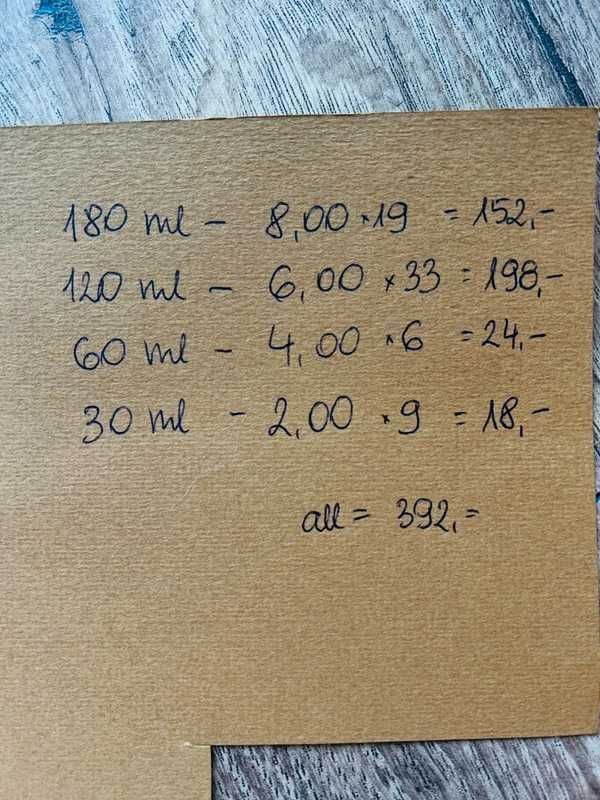 180 ml - 8,00 × 19 = 152,-
120 ml - 6,00 × 33 = 198,-
60 ml - 4,00 × 6 = 24,-
30 ml - 2,00 × 9 = 18,-
all = 392,=